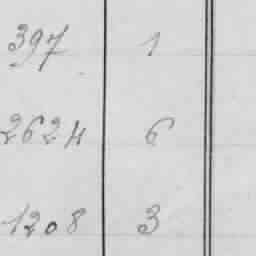 397 1
2624 6
1208 3